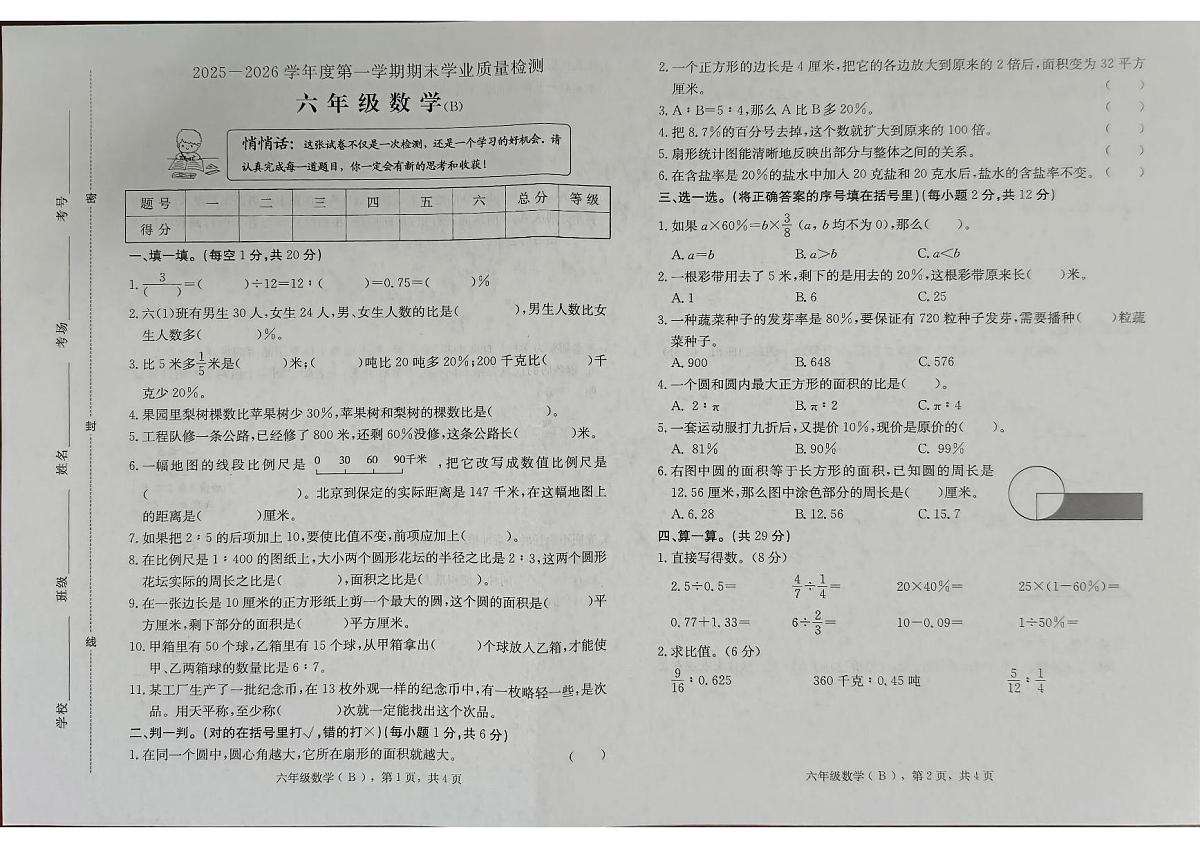 学校
班级
姓名
考场
考号
密
封
线
2025—2026学年度第一学期期末学业质量检测
六年级数学(B)
悄悄话：这张试卷不仅是一次检测，还是一个学习的好机会。请
认真完成每一道题目，你一定会有新的思考和收获！
题号 一 二 三 四 五 六 总分 等级
得分
一、填一填。(每空1分,共20分)
1. 3/(　　)=(　　)÷12=12∶(　　)=0.75=(　　)%
2.六(1)班有男生30人,女生24人,男、女生人数的比是(　　),男生人数比女
生人数多(　　)%。
3.比5米多1/5米是(　　)米;(　　)吨比20吨多20%;200千克比(　　)千
克少20%。
4.果园里梨树棵数比苹果树少30%,苹果树和梨树的棵数比是(　　)。
5.工程队修一条公路,已经修了800米,还剩60%没修,这条公路长(　　)米。
6.一幅地图的线段比例尺是 0 30 60 90千米 ,把它改写成数值比例尺是
(　　)。北京到保定的实际距离是147千米,在这幅地图上
的距离是(　　)厘米。
7.如果把2∶5的后项加上10,要使比值不变,前项应加上(　　)。
8.在比例尺是1∶400的图纸上,大小两个圆形花坛的半径之比是2∶3,这两个圆形
花坛实际的周长之比是(　　),面积之比是(　　)。
9.在一张边长是10厘米的正方形纸上剪一个最大的圆,这个圆的面积是(　　)平
方厘米,剩下部分的面积是(　　)平方厘米。
10.甲箱里有50个球,乙箱里有15个球,从甲箱拿出(　　)个球放人乙箱,才能使
甲、乙两箱球的数量比是6∶7。
11.某工厂生产了一批纪念币,在13枚外观一样的纪念币中,有一枚略轻一些,是次
品。用天平称,至少称(　　)次就一定能找出这个次品。
二、判一判。(对的在括号里打√,错的打×)(每小题1分,共6分)
1.在同一个圆中,圆心角越大,它所在扇形的面积就越大。 (　　)
六年级数学(B)，第1页，共4页
2.一个正方形的边长是4厘米,把它的各边放大到原来的2倍后,面积变为32平方
厘米。 (　　)
3.A∶B=5∶4,那么A比B多20%。 (　　)
4.把8.7%的百分号去掉,这个数就扩大到原来的100倍。 (　　)
5.扇形统计图能清晰地反映出部分与整体之间的关系。 (　　)
6.在含盐率是20%的盐水中加入20克盐和20克水后,盐水的含盐率不变。 (　　)
三、选一选。(将正确答案的序号填在括号里)(每小题2分,共12分)
1.如果a×60%=b×3/8(a,b均不为0),那么(　　)。
A.a=b B.a>b C.a<b
2.一根彩带用去了5米,剩下的是用去的20%,这根彩带原来长(　　)米。
A.1 B.6 C.25
3.一种蔬菜种子的发芽率是80%,要保证有720粒种子发芽,需要播种(　　)粒蔬
菜种子。
A.900 B.648 C.576
4.一个圆和圆内最大正方形的面积的比是(　　)。
A. 2∶π B.π∶2 C.π∶4
5.一套运动服打九折后,又提价10%,现价是原价的(　　)。
A. 81% B.90% C. 99%
6.右图中圆的面积等于长方形的面积,已知圆的周长是
12.56厘米,那么图中涂色部分的周长是(　　)厘米。
A.6.28 B.12.56 C.15.7
四、算一算。(共29分)
1.直接写得数。(8分)
2.5÷0.5= 4/7÷1/4= 20×40%= 25×(1−60%)=
0.77+1.33= 6÷2/3= 10−0.09= 1÷50%=
2.求比值。(6分)
9/16∶0.625 360千克∶0.45吨 5/12∶1/4
六年级数学(B)，第2页，共4页